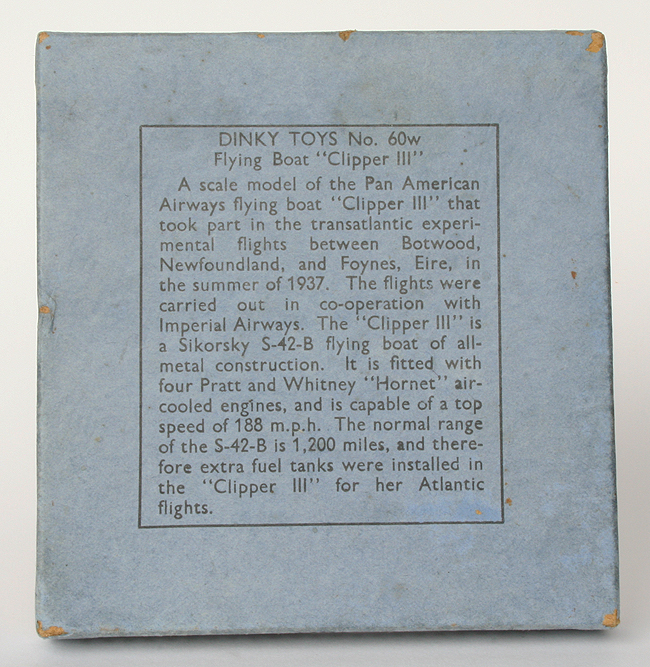 DINKY TOYS No. 60w
Flying Boat "Clipper III"
A scale model of the Pan American
Airways flying boat "Clipper III" that
took part in the transatlantic experi-
mental flights between Botwood,
Newfoundland, and Foynes, Eire, in
the summer of 1937. The flights were
carried out in co-operation with
Imperial Airways. The "Clipper III" is
a Sikorsky S-42-B flying boat of all-
metal construction. It is fitted with
four Pratt and Whitney "Hornet" air-
cooled engines, and is capable of a top
speed of 188 m.p.h. The normal range
of the S-42-B is 1,200 miles, and there-
fore extra fuel tanks were installed in
the "Clipper III" for her Atlantic
flights.